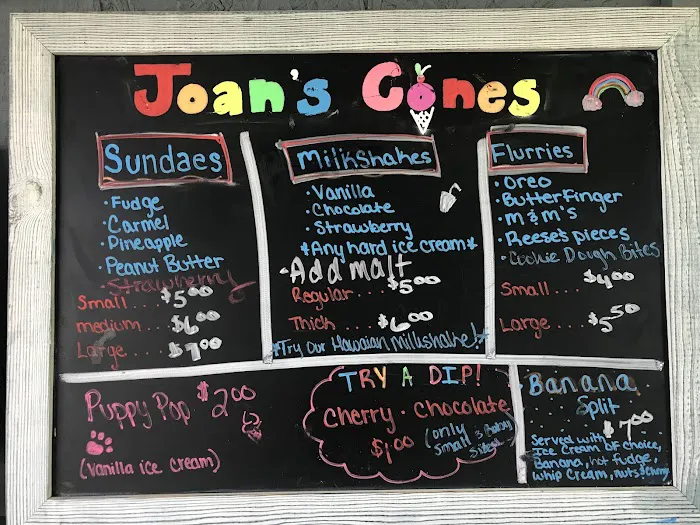 Joan's Cones
Sundaes
• Fudge
• Carmel
• Pineapple
• Peanut Butter
• Strawberry
Small.... $5.00
medium.... $6.00
Large.... $7.00
Milkshakes
• Vanilla
• Chocolate
• Strawberry
*Any hard ice cream*
• Add malt
Regular... $5.00
Thick... $6.00
*Try Our Hawaiian Milkshake!*
Flurries
• Oreo
• Butterfinger
• M & M's
• Reese's pieces
• Cookie Dough Bites
Small.... $4.00
Large.... $5.50
Puppy Pop $2.00
(Vanilla ice cream)
TRY A DIP!
Cherry • Chocolate
$1.00 (only
Small & Baby
Sizes)
Banana
Split
$7.00
Served with
Ice Cream of choice,
Banana, hot fudge,
whip Cream, nuts & Cherry